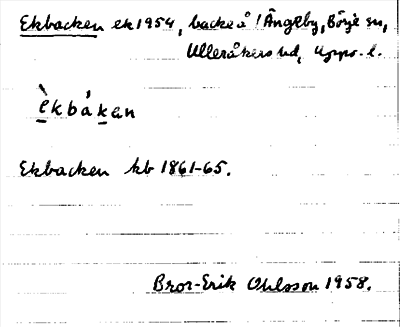 Ekbacken ek 1954, backe å Ängeby, Börje sn,
Ulleråkers hd, Upps. l.
èkbákan
Ekbacken kb 1861-65.
Bror-Erik Ohlsson 1958.